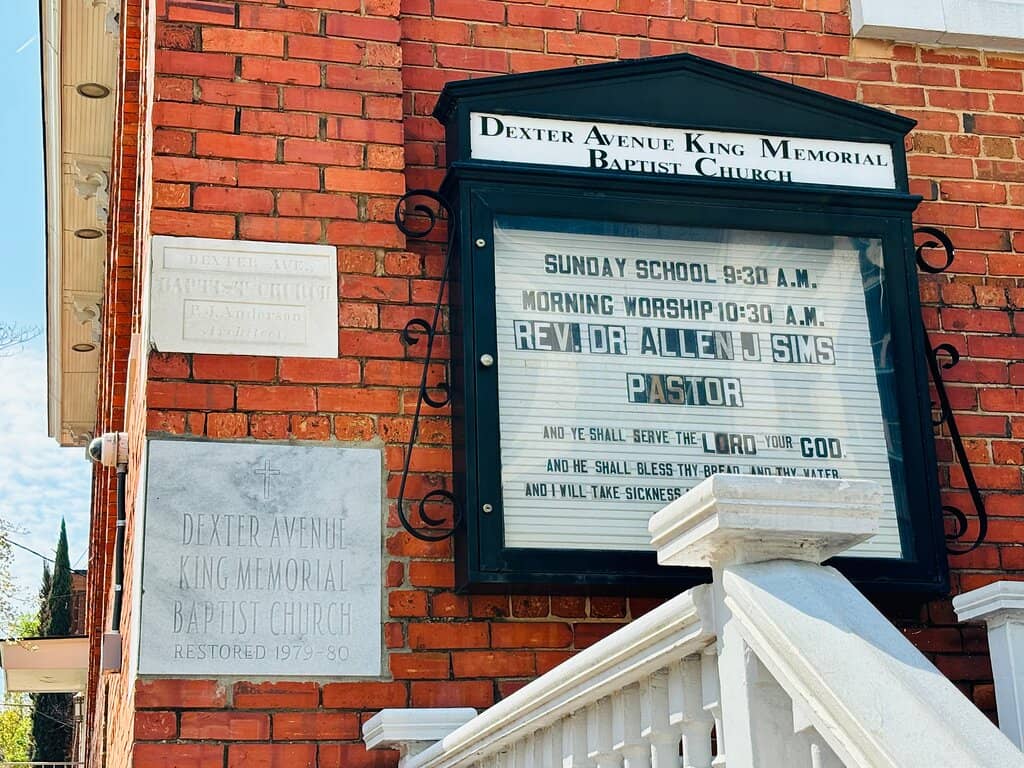 DEXTER AVENUE KING MEMORIAL
BAPTIST CHURCH
SUNDAY SCHOOL 9:30 A.M.
MORNING WORSHIP 10:30 A.M.
REV. DR ALLEN J SIMS
PASTOR
AND YE SHALL SERVE THE LORD YOUR GOD.
AND HE SHALL BLESS THY BREAD AND THY WATER
AND I WILL TAKE SICKNESS
DEXTER AVE.
BAPTIST CHURCH
P.J. Anderson
Architect
DEXTER AVENUE
KING MEMORIAL
BAPTIST CHURCH
RESTORED 1979-80